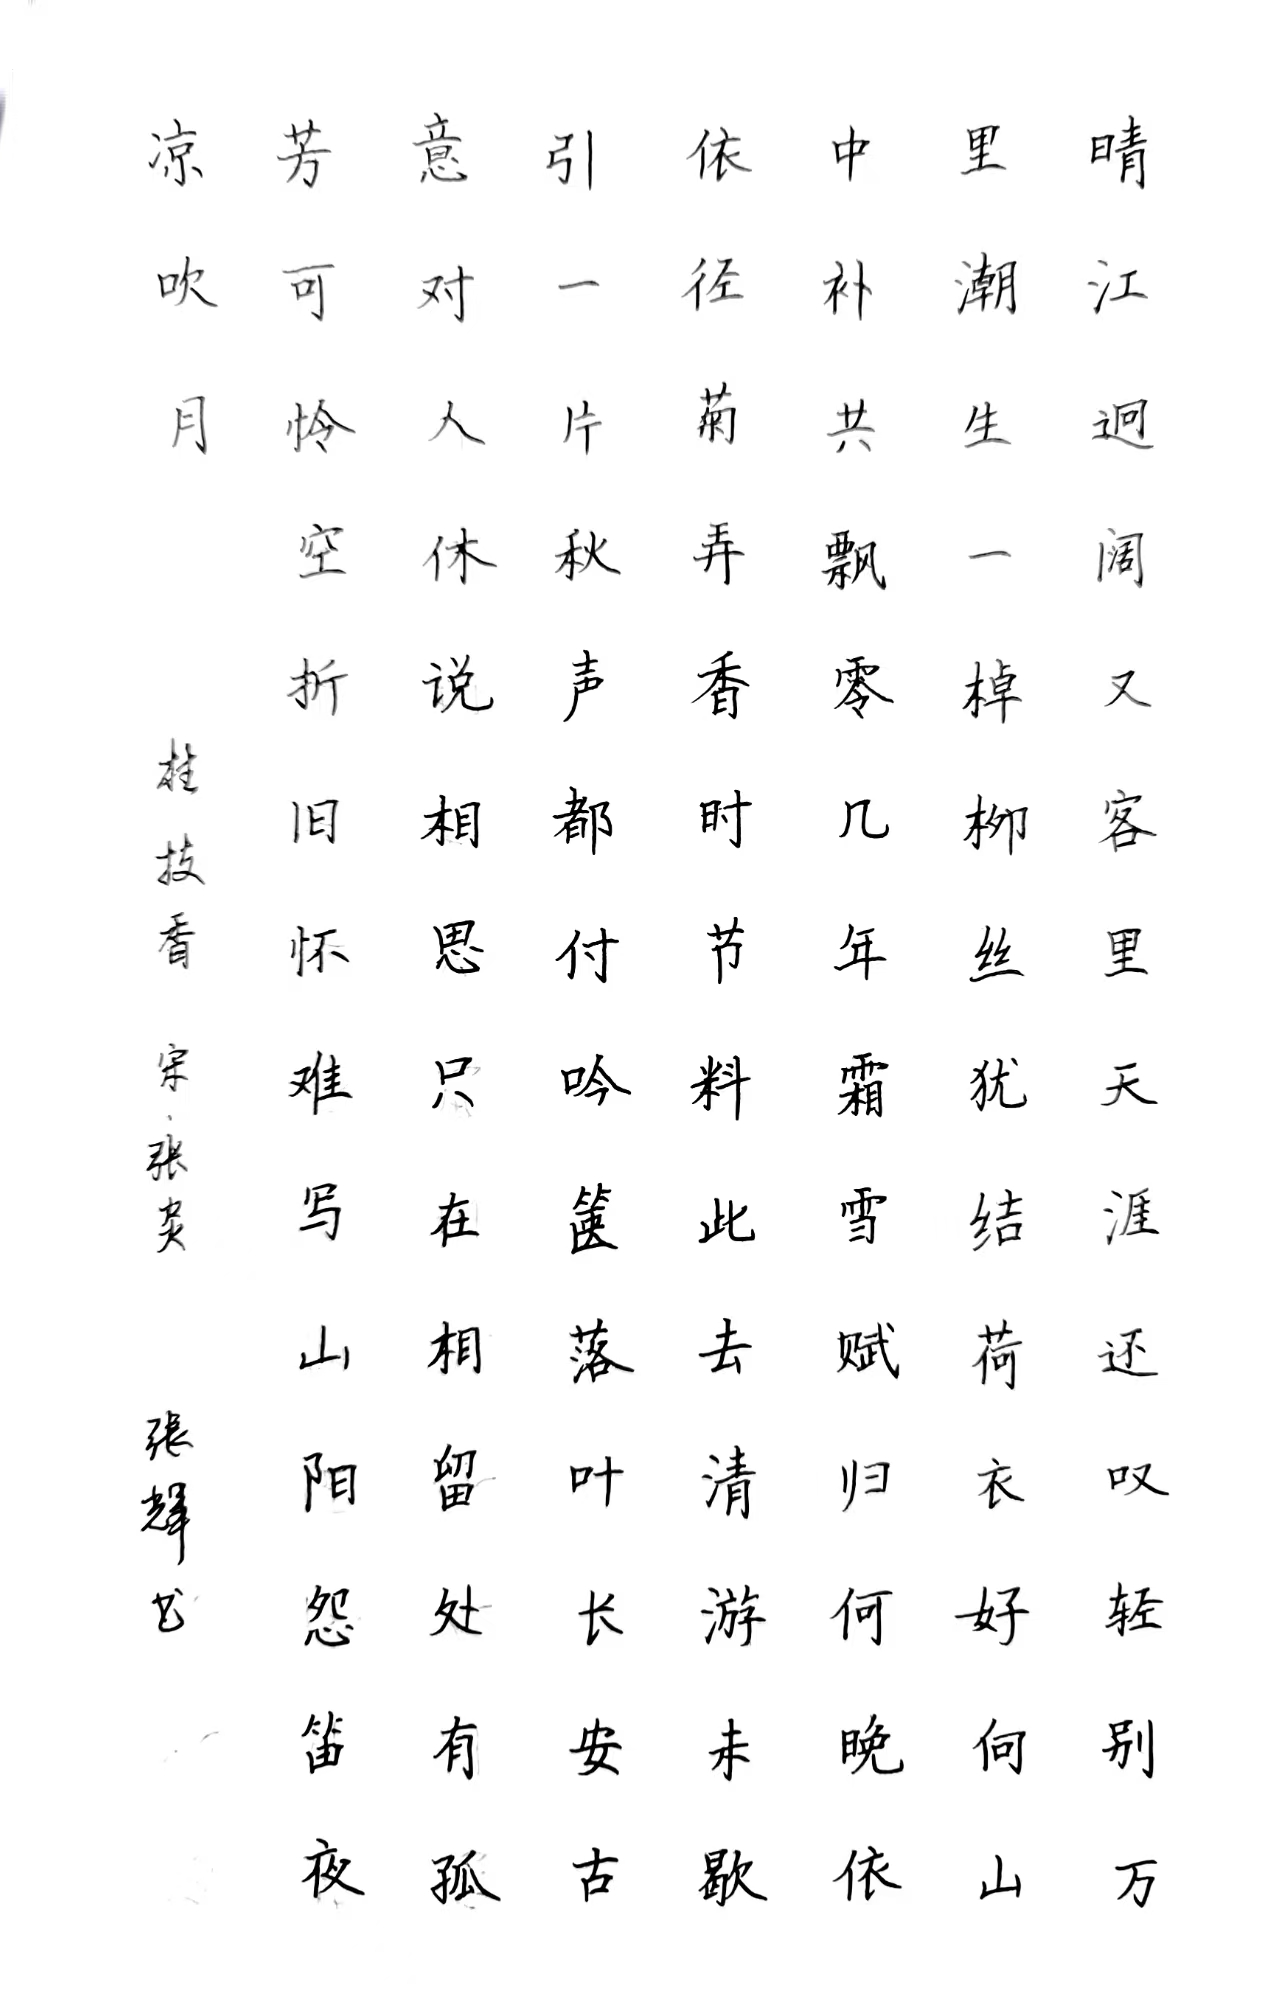 晴江迥阔又客里天涯还叹轻别万
里潮生一棹柳丝犹结荷衣好向山
中补共飘零几年霜雪赋归何晚依
依径菊弄香时节料此去清游未歇
引一片秋声都付吟箧落叶长安古
意对人休说相思只在相留处有孤
芳可怜空折旧怀难写山阳怨笛夜
凉吹月
桂枝香 宋·张炎
張輝书